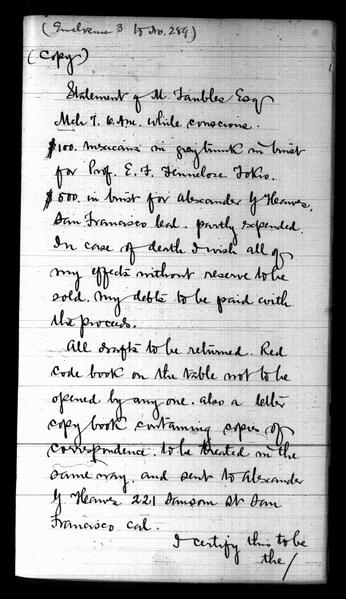 (Enclosure 3 to No. 289)
(Copy)
Statement of M. Faubles Esq
Mch 7. 6. Am. while conscious.
$100. mexicans in grey trunk in trust
for Prof. E. F. Fennelose Tokio.
$500. in trust for Alexander G Hawes,
San Francisco Cal. partly expended.
In case of death I wish all of
my effects without reserve to be
sold. my debts to be paid with
the proceeds.
All drafts to be returned. Red
code book on the table not to be
opened by any one. also a letter
copy book containing copies of
correspondence. to be treated in the
same way. and sent to Alexander
G Hawes 221 Sansom St San
Francisco Cal.
I certify this to be
the/